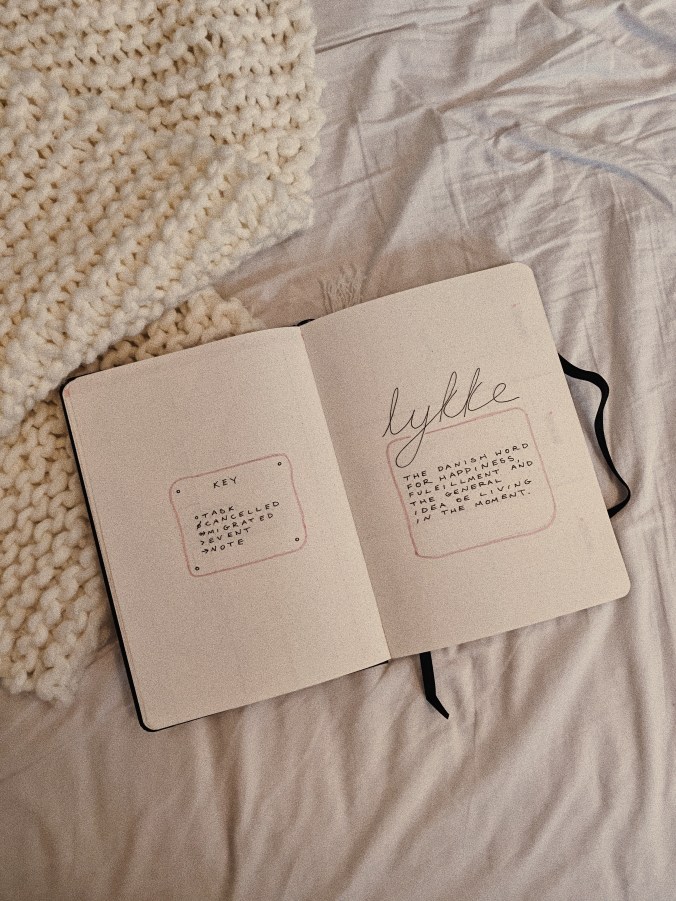 KEY
• TASK
ø CANCELLED
∞ MIGRATED
> EVENT
→ NOTE
lykke
THE DANISH WORD
FOR HAPPINESS,
FULFILLMENT AND
THE GENERAL
IDEA OF LIVING
IN THE MOMENT.